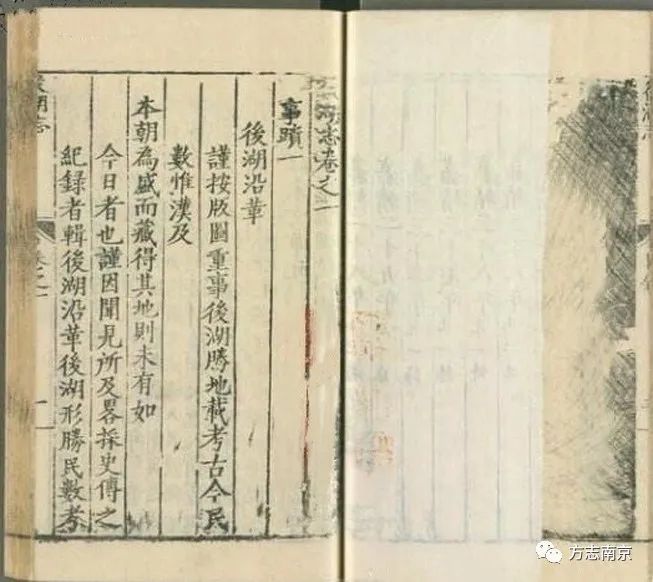 後湖志卷之一
事蹟一
後湖沿革
謹按版圖重事後湖勝地載考古今民
數惟漢及
本朝為盛而藏得其地則未有如
今日者也謹因聞見所及畧採史傳之
紀録者輯後湖沿革後湖形勝民數考
後湖志
方志南京